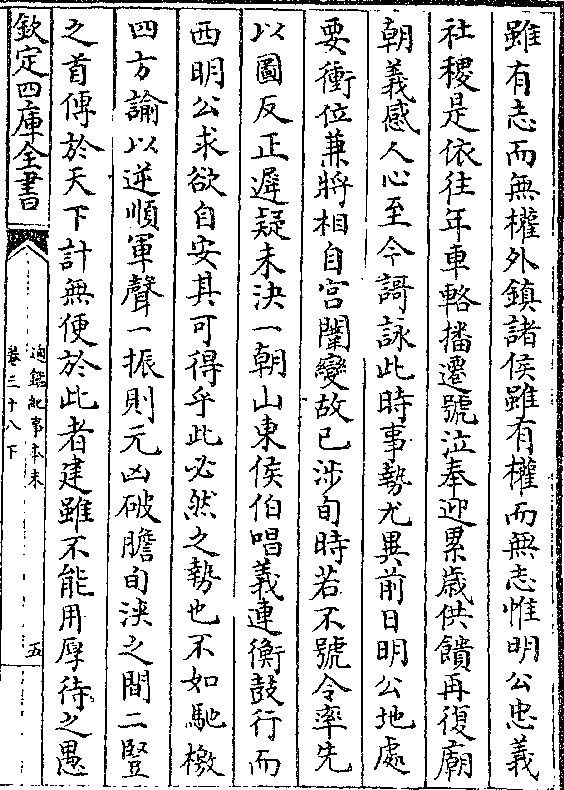 雖有志而無權外鎮諸侯雖有權而無志惟明公忠義
社稷是依徃年車輅播遷號泣奉迎累歲供饋再復廟
朝義感人心至今謌詠此時事勢尤異前日明公地處
要衝位兼將相自宫闈變故已涉旬時若不號令率先
以圖反正遲疑未決一朝山東侯伯唱義連衡鼓行而
西明公求欲自安其可得乎此必然之勢也不如馳檄
四方諭以逆順軍聲一振則元凶破膽旬浹之間二豎
之首傳於天下計無便於此者建雖不能用厚待之愚
欽定四庫全書
通鑑紀事本末
卷三十八下
五